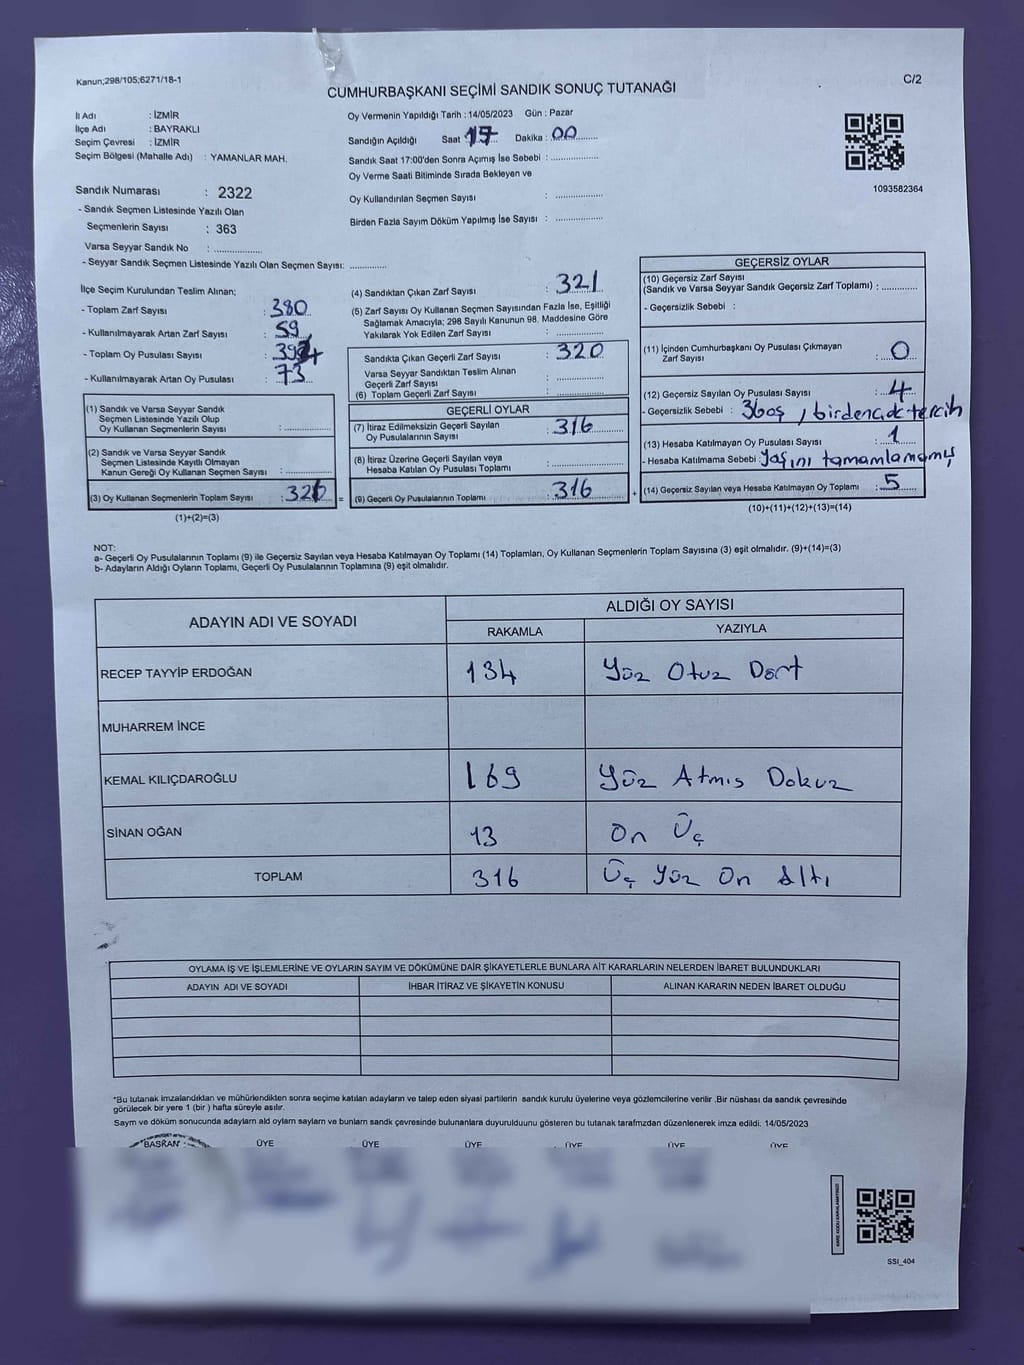 Kanun;298/105;6271/18-1
C/2
CUMHURBAŞKANI SEÇİMİ SANDIK SONUÇ TUTANAĞI
İl Adı : İZMİR
İlçe Adı : BAYRAKLI
Seçim Çevresi : İZMİR
Seçim Bölgesi (Mahalle Adı) : YAMANLAR MAH.
Oy Vermenin Yapıldığı Tarih : 14/05/2023 Gün : Pazar
Sandığın Açıldığı Saat 17 Dakika : 00
Sandık Saat 17:00'den Sonra Açımış İse Sebebi : ................
Oy Verme Saati Bitiminde Sırada Bekleyen ve
Oy Kullandırılan Seçmen Sayısı : ................
Birden Fazla Sayım Döküm Yapılmış İse Sayısı : ................
1093582364
Sandık Numarası : 2322
- Sandık Seçmen Listesinde Yazılı Olan
Seçmenlerin Sayısı : 363
Varsa Seyyar Sandık No : ................
- Seyyar Sandık Seçmen Listesinde Yazılı Olan Seçmen Sayısı: ............
İlçe Seçim Kurulundan Teslim Alınan;
- Toplam Zarf Sayısı : 380
- Kullanılmayarak Artan Zarf Sayısı : 59
- Toplam Oy Pusulası Sayısı :
- Kullanılmayarak Artan Oy Pusulası : 73
(1) Sandık ve Varsa Seyyar Sandık
Seçmen Listesinde Yazılı Olup
Oy Kullanan Seçmenlerin Sayısı : ................
(2) Sandık ve Varsa Seyyar Sandık
Seçmen Listesinde Kayıtlı Olmayan
Kanun Gereği Oy Kullanan Seçmen Sayısı : ................
(3) Oy Kullanan Seçmenlerin Toplam Sayısı : =
(1)+(2)=(3)
(4) Sandıktan Çıkan Zarf Sayısı : 321
(5) Zarf Sayısı Oy Kullanan Seçmen Sayısından Fazla İse, Eşitliği
Sağlamak Amacıyla; 298 Sayılı Kanunun 98. Maddesine Göre
Yakılarak Yok Edilen Zarf Sayısı : ................
Sandıkta Çıkan Geçerli Zarf Sayısı : 320
Varsa Seyyar Sandıktan Teslim Alınan
Geçerli Zarf Sayısı : ................
(6) Toplam Geçerli Zarf Sayısı : ................
GEÇERLİ OYLAR
(7) İtiraz Edilmeksizin Geçerli Sayılan
Oy Pusulalarının Sayısı : 316
(8) İtiraz Üzerine Geçerli Sayılan veya
Hesaba Katılan Oy Pusulası Toplamı : ................
(9) Geçerli Oy Pusulalarının Toplamı : 316 +
GEÇERSİZ OYLAR
(10) Geçersiz Zarf Sayısı
(Sandık ve Varsa Seyyar Sandık Geçersiz Zarf Toplamı) : ............
- Geçersizlik Sebebi :
(11) İçinden Cumhurbaşkanı Oy Pusulası Çıkmayan
Zarf Sayısı : 0
(12) Geçersiz Sayılan Oy Pusulası Sayısı : 4
- Geçersizlik Sebebi : 3boş, birden çok tercih
(13) Hesaba Katılmayan Oy Pusulası Sayısı : 1
- Hesaba Katılmama Sebebi : Yaşını tamamlamamış
(14) Geçersiz Sayılan veya Hesaba Katılmayan Oy Toplamı : 5
(10)+(11)+(12)+(13)=(14)
NOT:
a- Geçerli Oy Pusulalarının Toplamı (9) ile Geçersiz Sayılan veya Hesaba Katılmayan Oy Toplamı (14) Toplamları, Oy Kullanan Seçmenlerin Toplam Sayısına (3) eşit olmalıdır. (9)+(14)=(3)
b- Adayların Aldığı Oyların Toplamı, Geçerli Oy Pusulalarının Toplamına (9) eşit olmalıdır.
ADAYIN ADI VE SOYADI
ALDIĞI OY SAYISI
RAKAMLA YAZIYLA
RECEP TAYYİP ERDOĞAN 134 Yüz Otuz Dört
MUHARREM İNCE
KEMAL KILIÇDAROĞLU 169 Yüz Atmış Dokuz
SİNAN OĞAN 13 On Üç
TOPLAM 316 Üç Yüz On Altı
OYLAMA İŞ VE İŞLEMLERİNE VE OYLARIN SAYIM VE DÖKÜMÜNE DAİR ŞİKAYETLERLE BUNLARA AİT KARARLARIN NELERDEN İBARET BULUNDUKLARI
ADAYIN ADI VE SOYADI İHBAR İTİRAZ VE ŞİKAYETİN KONUSU ALINAN KARARIN NEDEN İBARET OLDUĞU
*Bu tutanak imzalandıktan ve mühürlendikten sonra seçime katılan adayların ve talep eden siyasi partilerin sandık kurulu üyelerine veya gözlemcilerine verilir .Bir nüshası da sandık çevresinde
görülecek bir yere 1 (bir ) hafta süreyle asılır.
Sayım ve döküm sonucunda adayların ald oyların sayların ve bunların sandk çevresinde bulunanlara duyurulduunu gösteren bu tutanak tarafmzdan düzenlenerek imza edildi. 14/05/2023
BAŞKAN ÜYE ÜYE ÜYE ÜYE ÜYE ÜYE
SSI_404